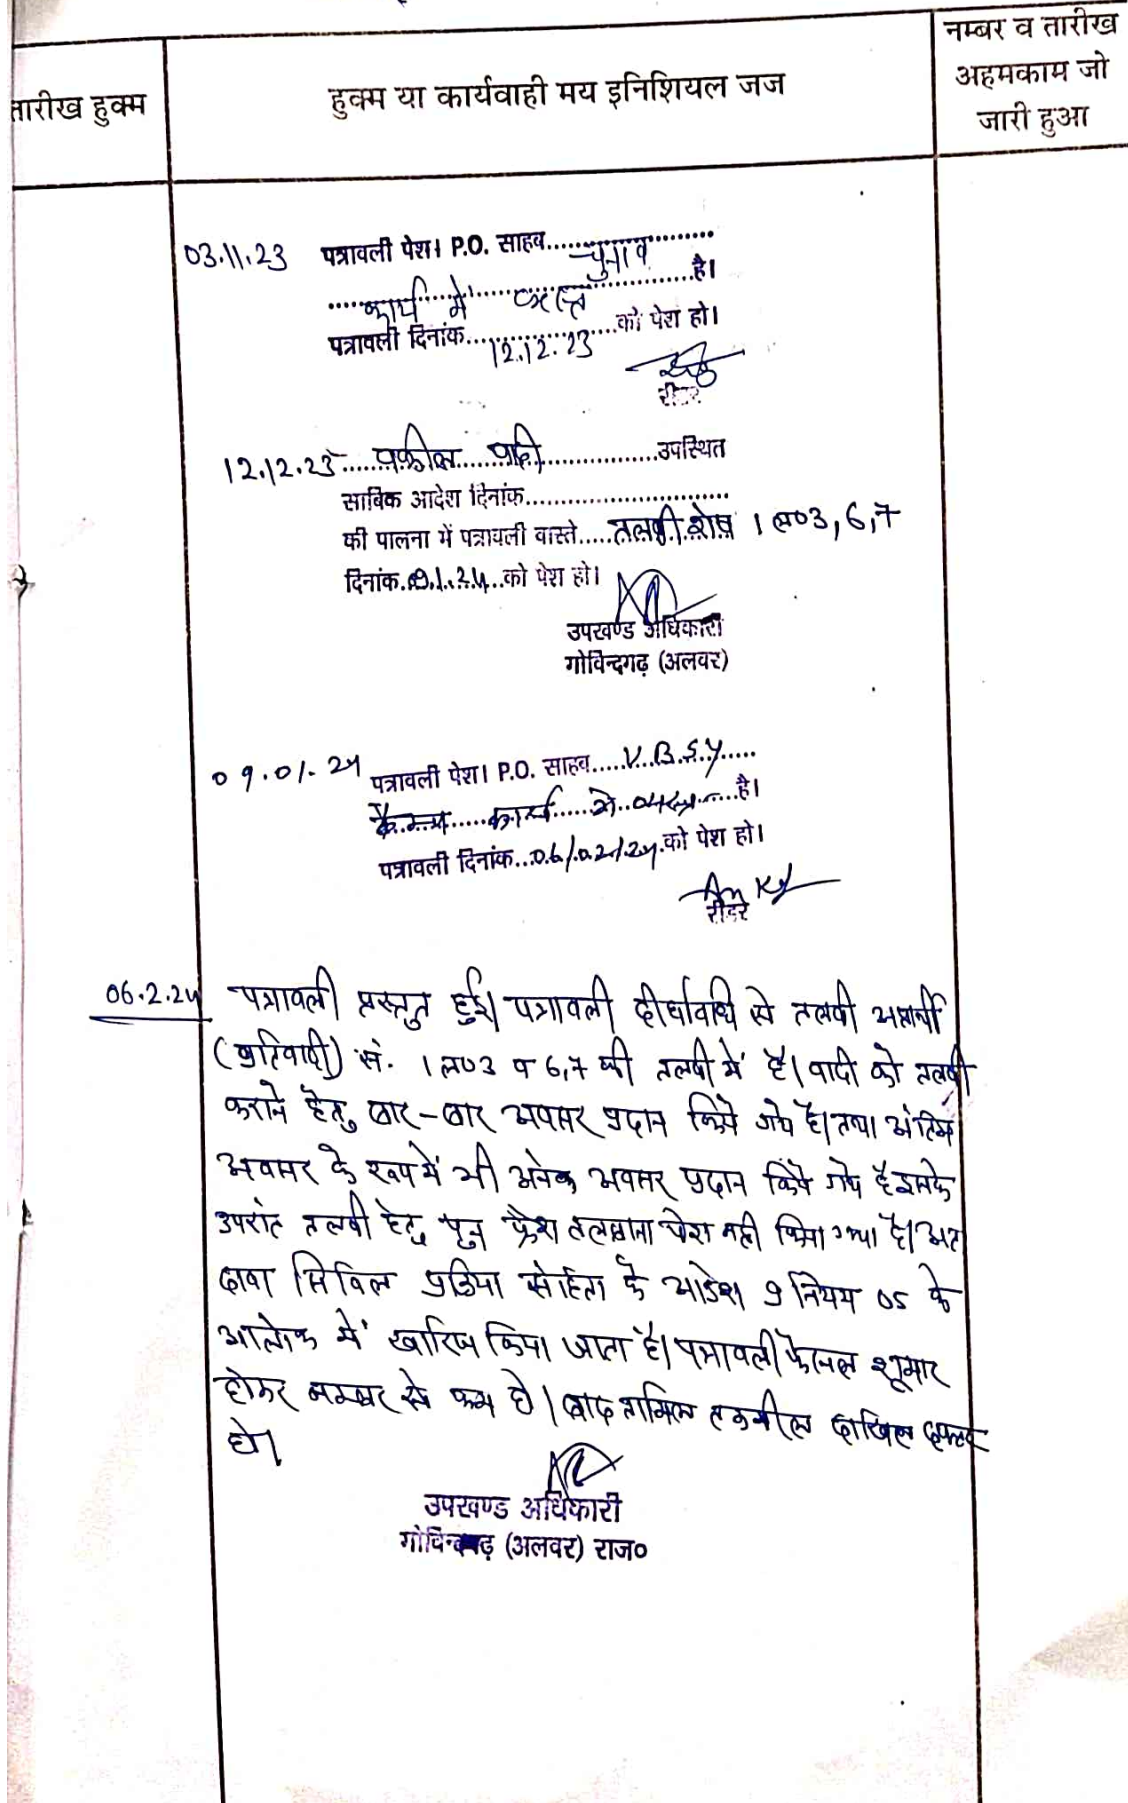 तारीख हुक्म
हुक्म या कार्यवाही मय इनिशियल जज
नम्बर व तारीख
अहमकाम जो
जारी हुआ
03.11.23 पत्रावली पेश। P.O. साहब......चुनाव
कार्य में व्यस्त है।
पत्रावली दिनांक....12.12.23....को पेश हो।
रीडर
12.12.23 वकील वादी उपस्थित
साबिक आदेश दिनांक
की पालना में पत्रावली वास्ते.....तलबी शेष 1 ल03, 6,7
दिनांक.09.1.24..को पेश हो।
उपखण्ड अधिकारी
गोविन्दगढ़ (अलवर)
09.01.24 पत्रावली पेश। P.O. साहब.....V.B.S.Y.....
कैम्प कार्य में व्यस्त है।
पत्रावली दिनांक...06/02/24.को पेश हो।
रीडर
06.2.24 पत्रावली प्रस्तुत हुई। पत्रावली दीर्घावधि से तलबी अप्रार्थी
(प्रतिवादी) सं. 1 ल03 व 6,7 की तलबी में है। वादी को तलबी
कराने हेतु बार-बार अवसर प्रदान किये गये है। तथा अंतिम
अवसर के रूप में भी अनेक अवसर प्रदान किये गये है इसके
उपरांत तलबी हेतु पुन फ्रेश तलबाना पेश नही किया गया है। अत
दावा सिविल प्रक्रिया संहिता के आदेश 9 नियम 05 के
आलोक में खारिज किया जाता है। पत्रावली फैसल शूमार
होकर नम्बर से कम हो। बाद तामिल तकमील दाखिल दफ्तर
हो।
उपखण्ड अधिकारी
गोविन्दगढ़ (अलवर) राज०